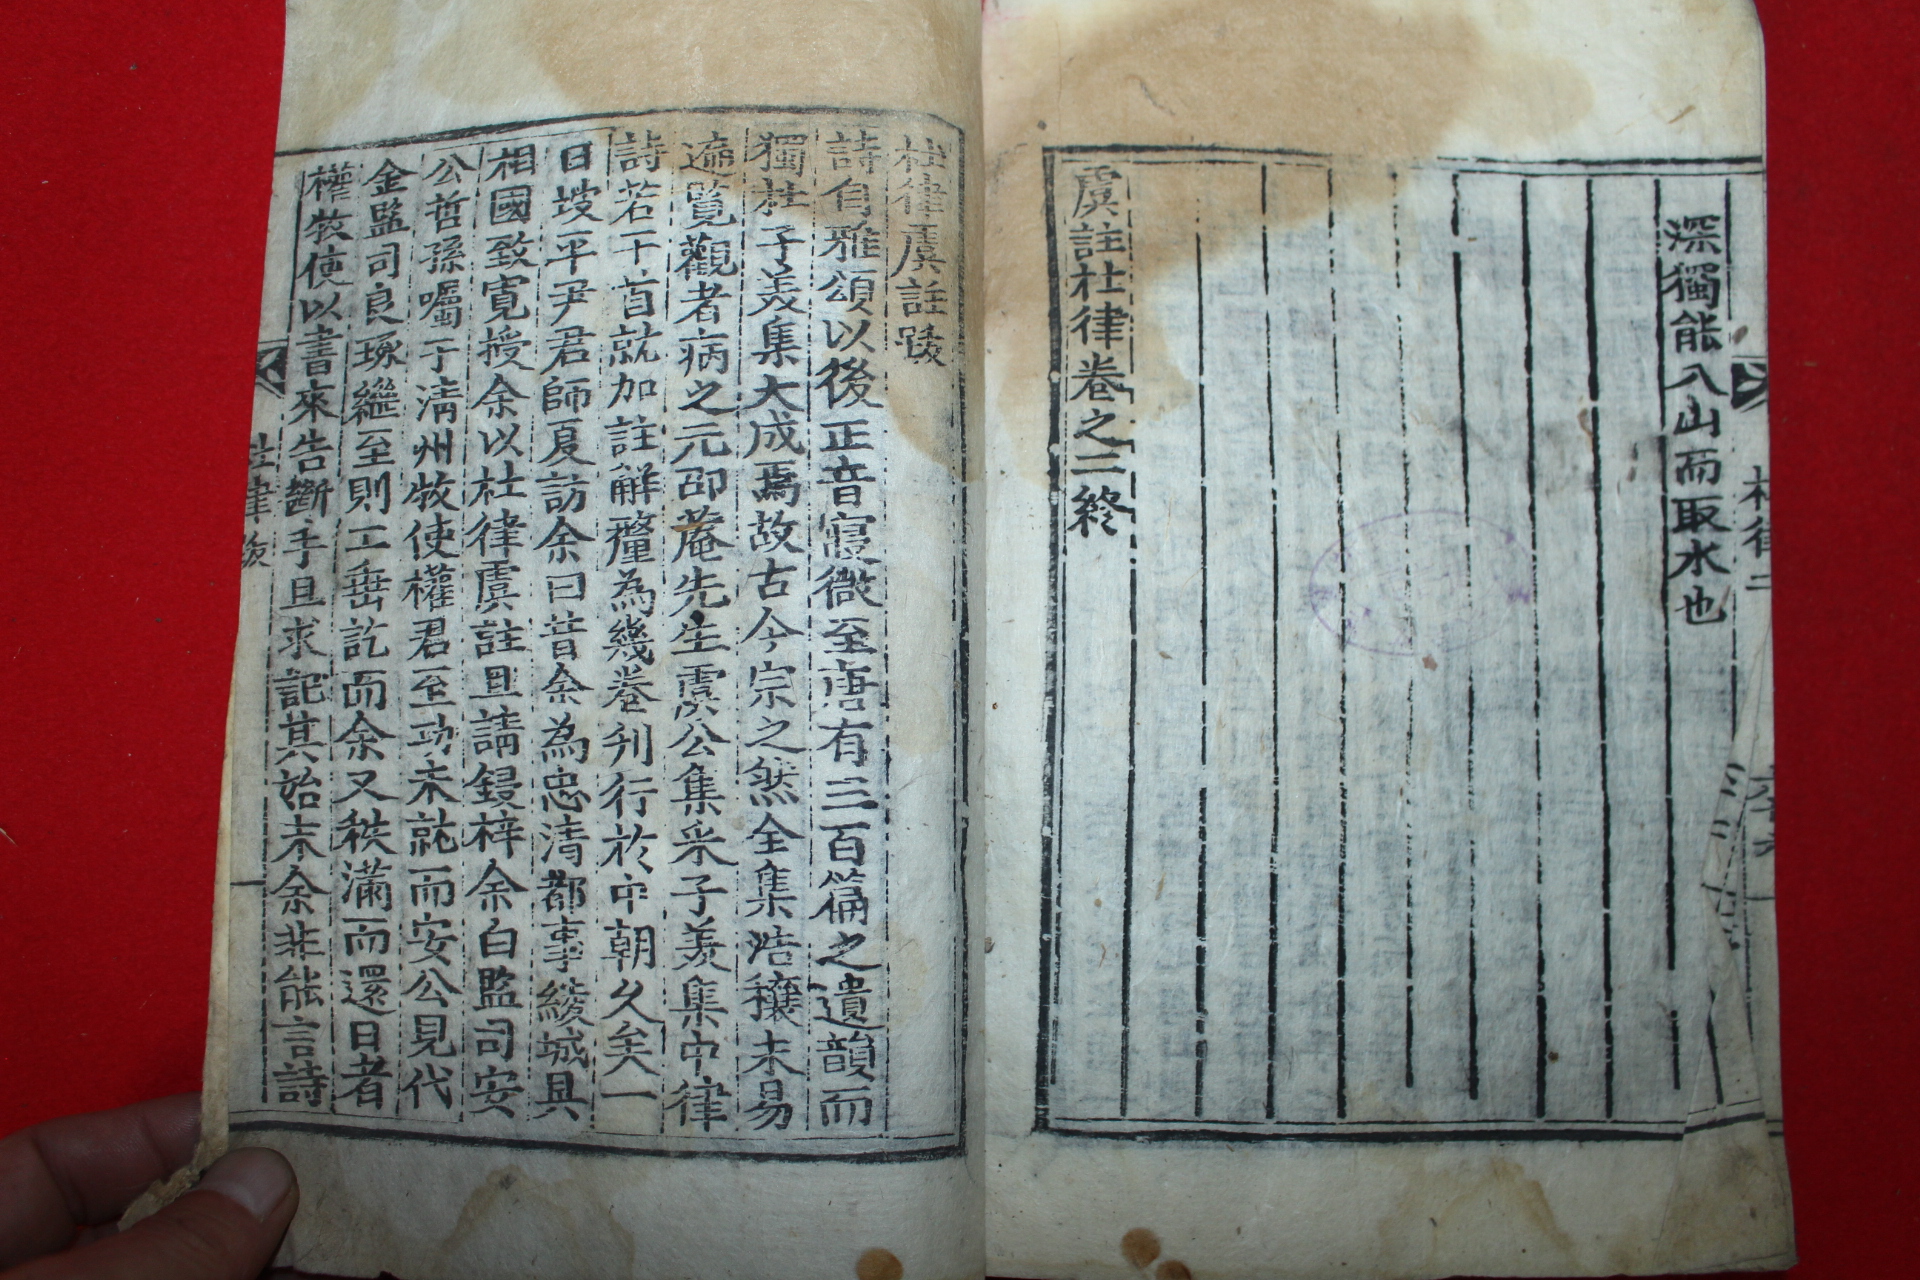 深獨能入山而取水也
虞註杜律卷之二終
杜律二
杜律虞註跋
詩自雅頌以後正音寢微至唐有三百篇之遺韻而
獨杜子美集大成焉故古今宗之然全集浩穰未易
遍覽觀者病之元邵菴先生虞公集采子美集中律
詩若干首就加註解釐為幾卷刋行於中朝久矣一
日坡平尹君師夏訪余曰昔余為忠清都事綾城具
相國致寬授余以杜律虞註且請鋟梓余白監司安
公哲孫囑于清州牧使權君至功未就而安公見代
金監司良璥繼至則工垂訖而余又秩滿而還日者
權牧使以書來告斷手且求記其始末余非能言詩
杜律跋
一